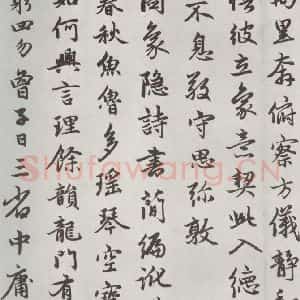 萬里奔俯察方儀靜
悟彼立象意契此入德
不息敬守思弥敦
圖象隐詩書简編訛
春秋魚魯多瑶琴空寶
如何興言理餘韻龍門有
躬四勿曾子日三省中庸
Shufawang.CN